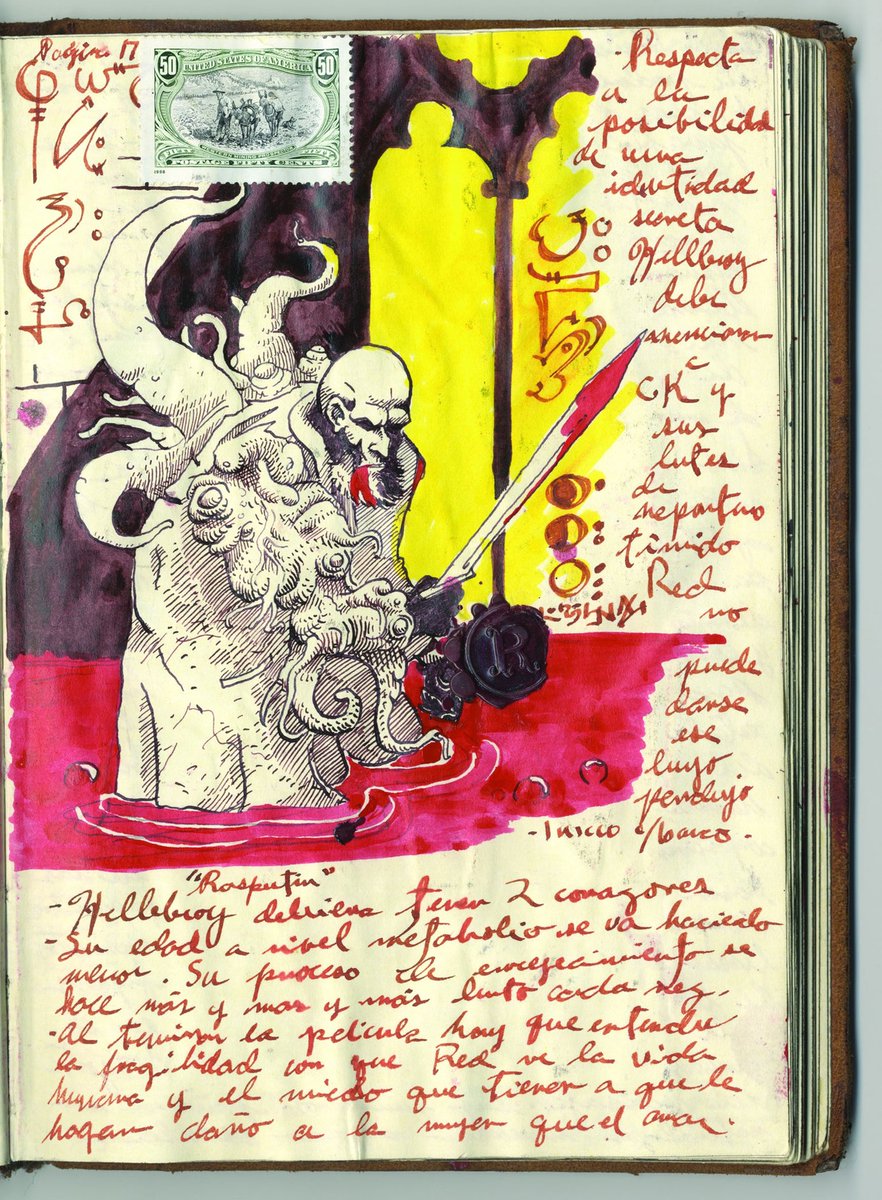 Pagina 17
50 UNITED STATES OF AMERICA 50
WESTERN MINING PROSPECTOR
POSTAGE FIFTY CENTS
1998
-Respecto
a la
posibilidad
de una
identidad
secreta
Hellboy
debe
mencionar
a
CK y
sus
lentes
de
reportero
timido
Red
no
puede
darse
ese
lujo
pendejo.
R.
"Rasputin"
-Hellboy debiera tener 2 corazones
-Su edad a nivel metabolico se va haciendo
menor. Su proceso de envejecimiento se
hace más y mas y más lento cada vez.
-Al terminar la película hay que entender
la fragilidad con que Red ve la vida
humana y el miedo que tiene a que le
hagan daño a la mujer que el ama.